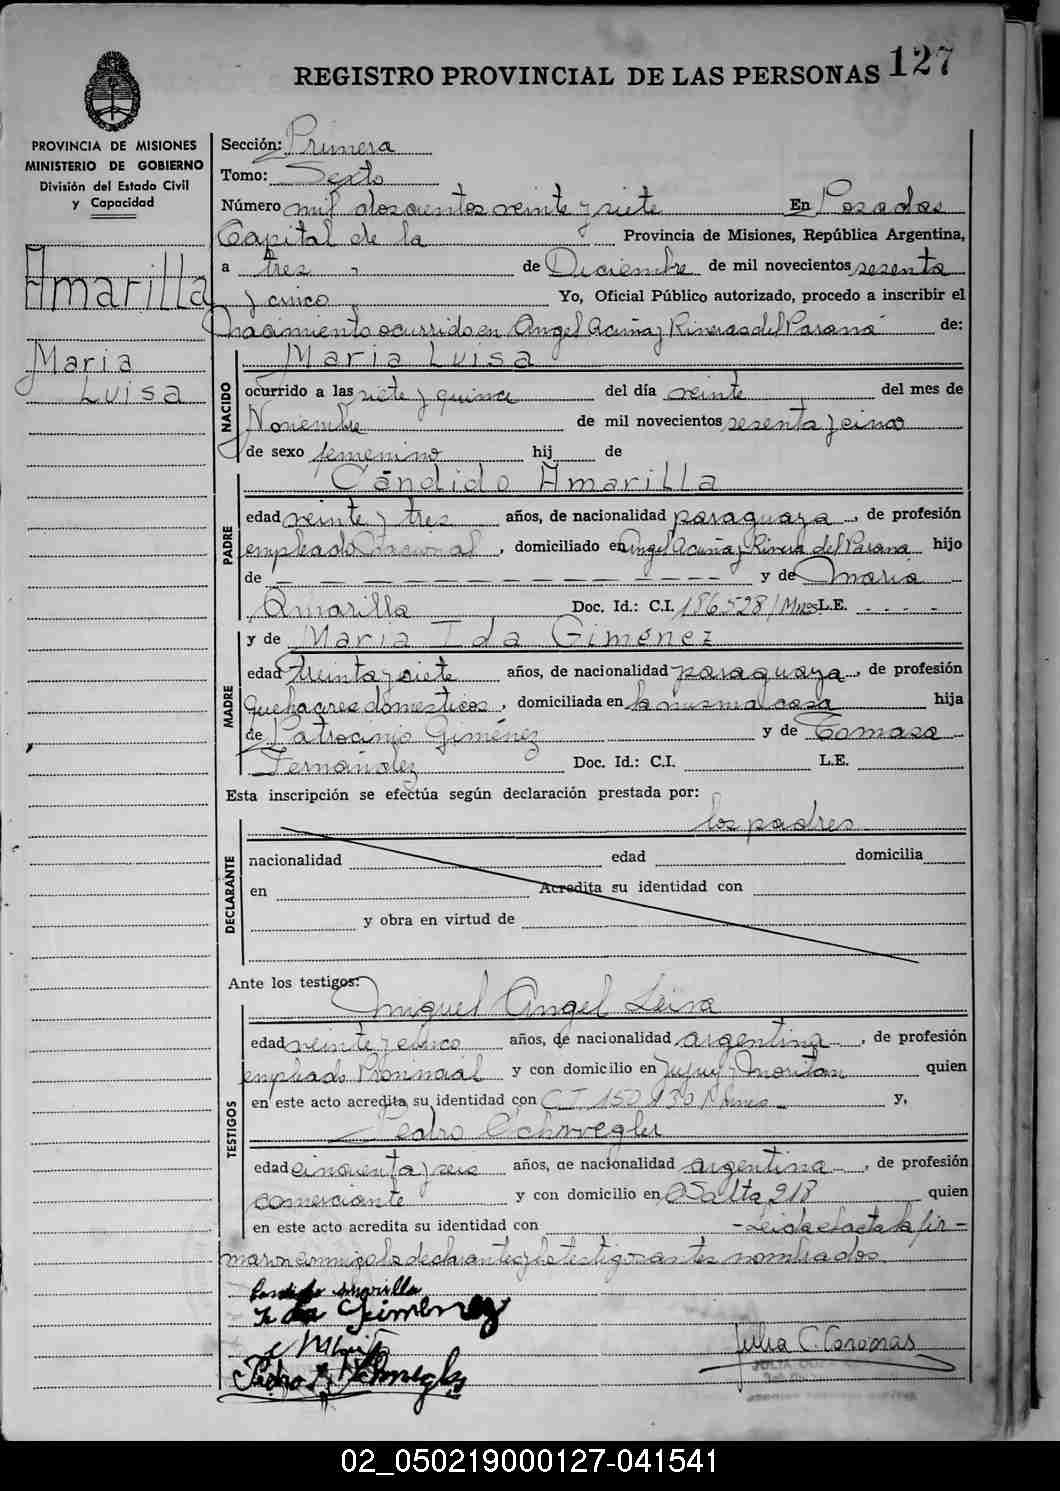 REGISTRO PROVINCIAL DE LAS PERSONAS 127
PROVINCIA DE MISIONES
MINISTERIO DE GOBIERNO
División del Estado Civil
y Capacidad
Amarilla
Maria
Luisa
Sección: Primera
Tomo: Sexto
Número mil doscientos veinte y siete En Posadas
Capital de la Provincia de Misiones, República Argentina,
a tres - de Diciembre de mil novecientos sesenta
y cinco Yo, Oficial Público autorizado, procedo a inscribir el
nacimiento ocurrido en Angel Acuña y Riveras del Paraná de:
NACIDO
Maria Luisa
ocurrido a las siete y quince del día veinte del mes de
Noviembre de mil novecientos sesenta y cinco
de sexo femenino hij de
PADRE
Cándido Amarilla
edad veinte y tres años, de nacionalidad paraguaya, de profesión
empleado Nacional, domiciliado en Angel Acuña y Rivera del Parana hijo
de — — — — — — — — — — y de Maria
Amarilla Doc. Id.: C.I. 186.528/Mnes L.E. - - - -
MADRE
y de Maria Ida Giménez
edad treinta y siete años, de nacionalidad paraguaya, de profesión
quehaceres domesticos, domiciliada en la misma casa hija
de Patrocinio Giménez y de Tomasa
Fernández Doc. Id.: C.I. L.E.
Esta inscripción se efectúa según declaración prestada por:
los padres
DECLARANTE
nacionalidad edad domicilia
en Acredita su identidad con
y obra en virtud de
Ante los testigos:
TESTIGOS
Miguel Angel Leiva
edad veinte y cinco años, de nacionalidad argentina, de profesión
empleado Provincial y con domicilio en Jujuy y quien
en este acto acredita su identidad con C I y,
Pedro Schwegler
edad cincuenta y seis años, de nacionalidad argentina, de profesión
comerciante y con domicilio en Salta 218 quien
en este acto acredita su identidad con - Leida el acta la fir-
maron conmigo los declarantes y los testigos antes nombrados.
Candido Amarilla
Ida Gimenez
Julia C. Coronas
02_050219000127-041541